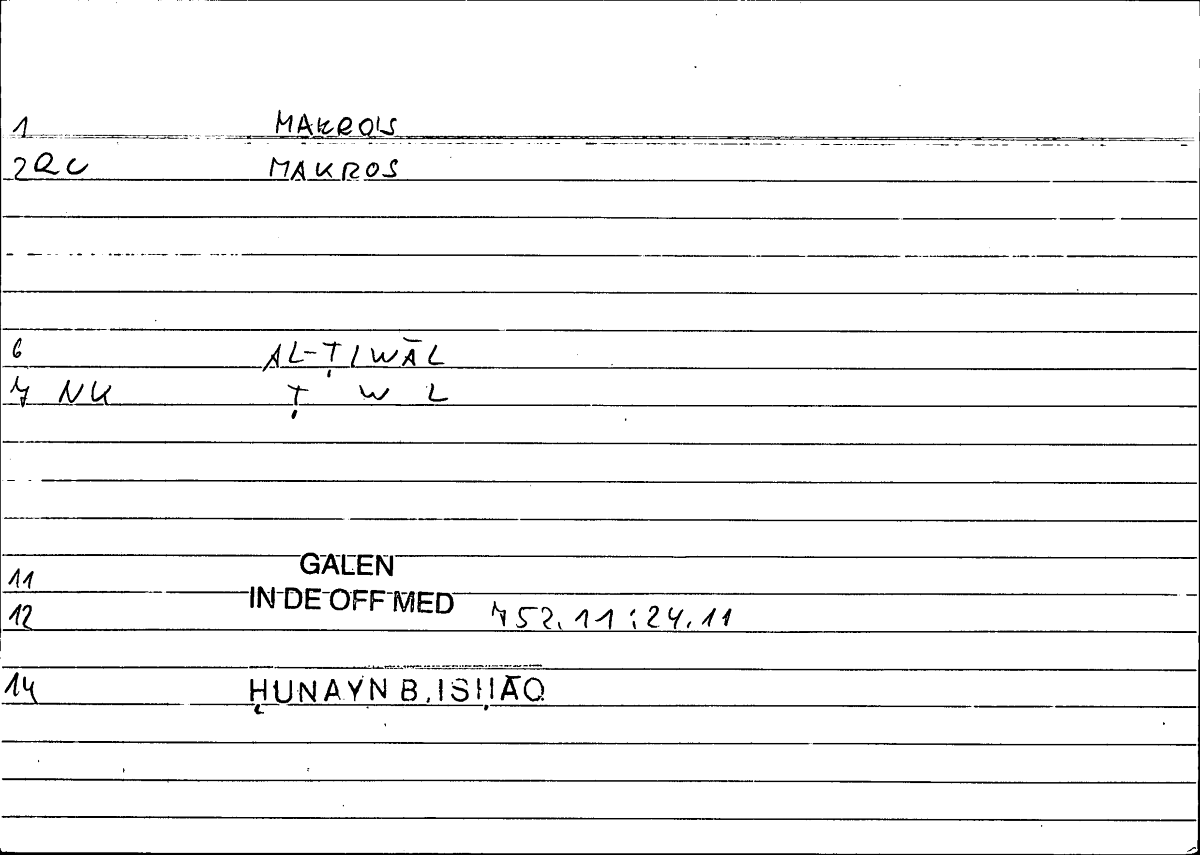 1 MAKROIS
2 QC MAKROS
6 AL-ṬIWĀL
7 NK Ṭ W L
11 GALEN
12 IN DE OFF MED 752.11:24.11
14 ḤUNAYN B. ISḤĀQ